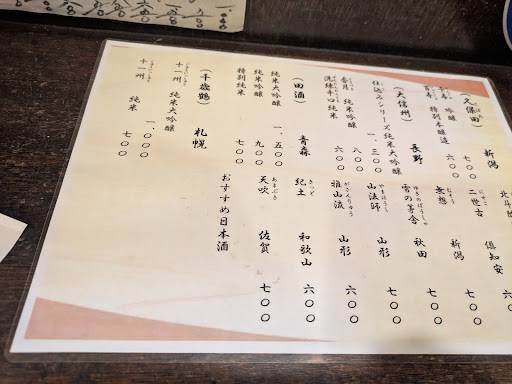 (久保田) 新潟
吟醸 七〇〇
百寿 特別本醸造 六〇〇
(大信州) 長野
仕込みシリーズ純米大吟醸 一、三〇〇
香月 純米吟醸 八〇〇
洗練辛口純米 六〇〇
(田酒) 青森
純米大吟醸 一、五〇〇
純米吟醸 九〇〇
特別純米 七〇〇
(千歳鶴) 札幌
十一州 純米大吟醸 一、〇〇〇
十一州 純米 七〇〇
北斗
二世古 倶知安 六〇
無想 新潟 七〇〇
雪の茅舎 秋田 七〇〇
山法師 山形 七〇〇
雅山流 山形 六〇〇
紀土 和歌山 六〇〇
天吹 佐賀 七〇〇
おすすめ日本酒